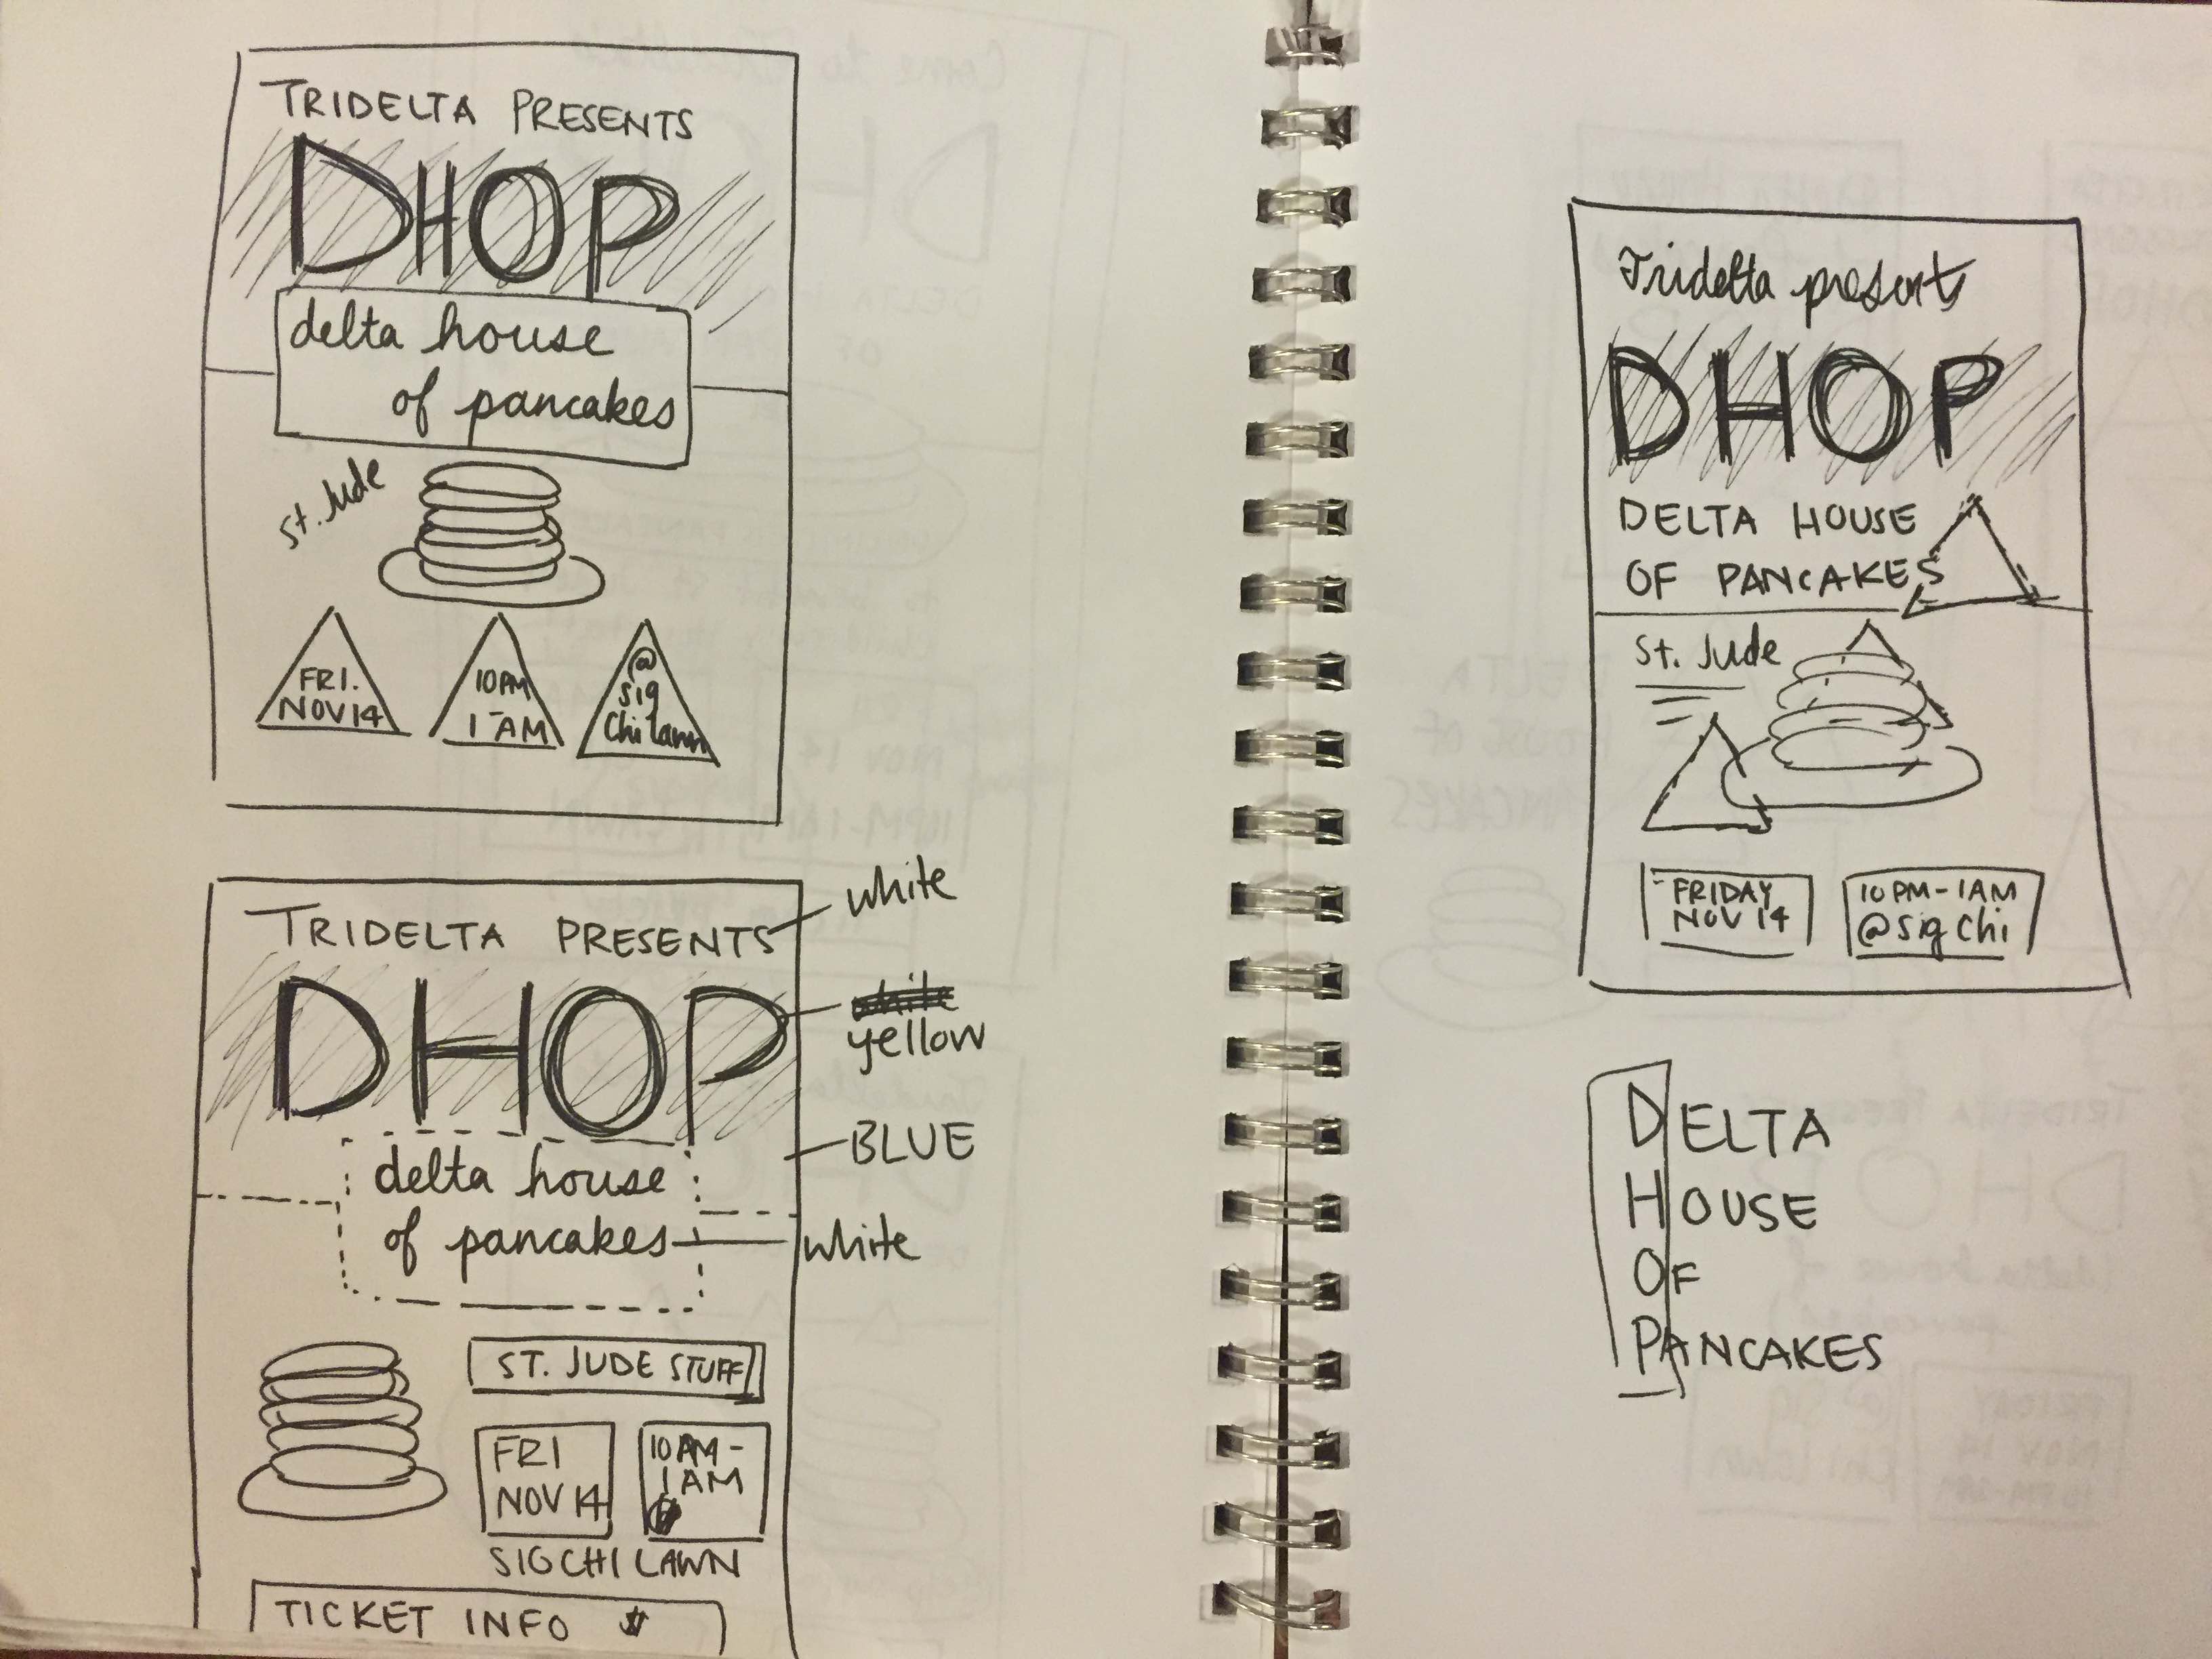 TRIDELTA PRESENTS
DHOP
delta house
of pancakes
St. Jude
FRI.
NOV 14
10PM
-
1 AM
@
Sig
Chi Lawn
TRIDELTA PRESENTS
white
DHOP
yellow
BLUE
delta house
of pancakes
white
ST. JUDE STUFF
FRI
NOV 14
10PM -
1 AM
SIGCHI LAWN
TICKET INFO $
Tridelta presents
DHOP
DELTA HOUSE
OF PANCAKES
St. Jude
FRIDAY
NOV 14
10 PM - 1AM
@ Sig Chi
DELTA
HOUSE
OF
PANCAKES